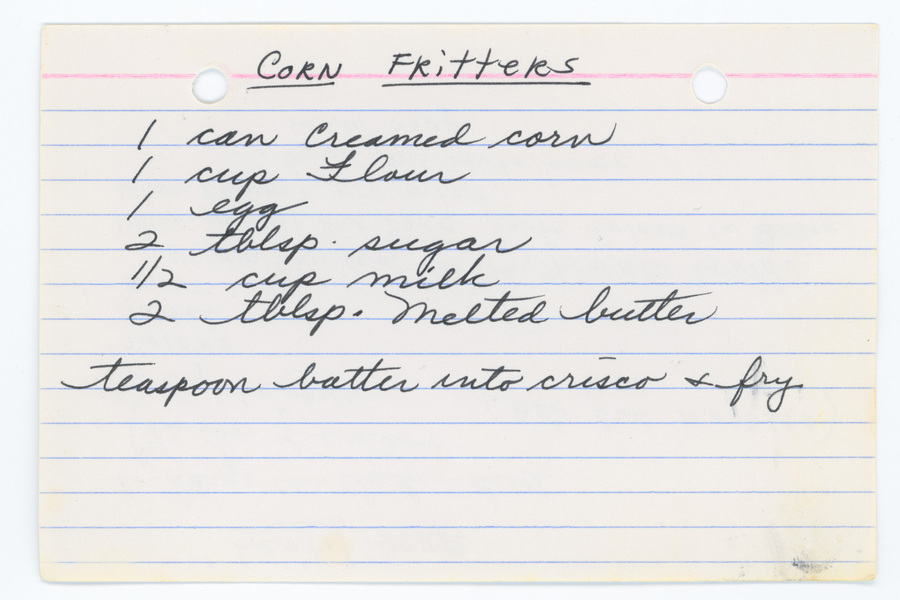 Corn Fritters
1 can Creamed corn
1 cup Flour
1 egg
2 tblsp. sugar
1/2 cup milk
2 tblsp. Melted butter
teaspoon batter into crisco & fry